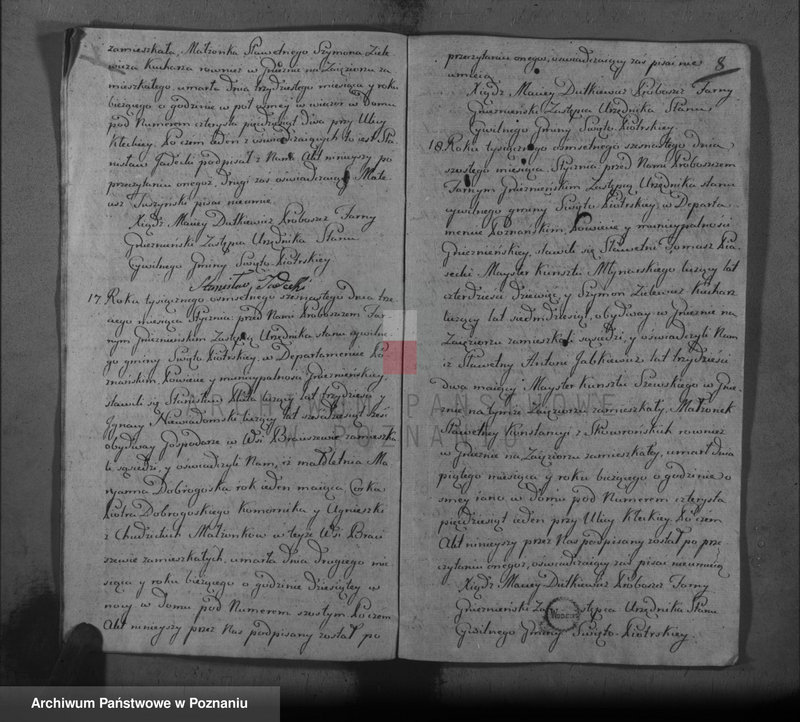 zamieszkała, Małżonka Sławetnego Szymona Zule
wicza Kucharza rowniez w Gnieznie na Zaieziorzu za
mieszkałego, umarła dnia trzydziestego miesiąca y roku
bieżącego o godzinie w puł ósmey w wieczor w Domu
pod Numerem czterysta pięcdziesiąt dwa przy Ulicy
Kleckiey. Po czem ieden z oswiadczaiących to iest Sta
nisław Jadecki podpisał z Nami Akt ninieyszy po
przeczytaniu onegoż, drugi zas oswiadczaiący Mate
usz Tuszyński pisac nieumie.
Xiądz Maciey Dutkiewicz Proboszcz Farny
Gnieznienski Zastępca Urzędnika Stanu
Cywilnego Gminy Swięto-Piotrskiey
Stanisław Jadecki
17. Roku tysiącznego osmsetnego szesnastego dnia trze
ciego miesiąca Stycznia przed Nami Proboszczem Far
nym Gnieznienskim Zastępcą Urzędnika stanu cywilne
go gminy Swięto Piotrskiey, w Departamencie Po
znanskim Powiecie y municypalnosci Gnieznienskiey,
stawili się Stanisław liczący lat trzydziesci y
Ignacy Niewiadomski liczący lat szescdziesiąt szesc
obydway Gospodarze w Wsi Braciszewie zamieszka
li sąsiedzi, y oswiadczyli Nam, iż małoletnia Ma
ryanna Dobrogoska rok ieden maiąca Corka
Piotra Dobrogoskiego Komornika y Agnieszki
z Chudzickich Małżonkow w teyże Wsi Braci
szewie zamieszkałych, umarła dnia drugiego mie
siąca y roku bieżącego o godzinie dziesiątey w
nocy w domu pod Numerem szostym. Po czem
Akt ninieyszy przez Nas podpisany został po
8
przeczytaniu onegoż, oswiadczaiący zas pisac nie
umieią
Xiądz Maciey Dutkiewicz Proboszcz Farny
Gnieznienski Zastępca Urzędnika Stanu
Cywilnego Gminy Swięto Piotrskiey.
18. Roku tysiącznego osmsetnego szesnastego dnia
szostego miesiąca Stycznia przed Nami Proboszczem
Farnym Gnieznienskim Zastępcą Urzędnika stanu
cywilnego gminy Swięto Piotrskiey, w Departa
mencie Poznanskim, Powiecie y municypalnosci
Gnieznienskiey, stawili się Sławetni Tomasz Pia
secki Mayster kunsztu Młynarskiego liczący lat
czterdziesci dziewięc y Szymon Zulewicz Kucharz
liczący lat siedmdziesiąt, obydway w Gnieznie na
Zaieziorzu zamieszkali, sąsiedzi, y oswiadczyli Nam
iż Sławetny Antoni Jabkiewicz lat trzydziesci
dwa maiący Mayster kunsztu Szewskiego w Gnie
znie na tymże Zaieziorzu zamieszkały, Małżonek
Sławetney Konstancyi z Skowrońskich rowniez
w Gnieznie na Zaieziorzu zamieszkałey, umarł dnia
piątego miesiąca y roku bieżącego o godzinie o
smey rano w domu pod Numerem czterysta
pięcdziesiąt ieden przy Ulicy Kleckiey. Po czem
Akt ninieyszy przez Nas podpisany został po prze
czytaniu onegoż, oswiadczaiący zas pisac nieumieią
Xiądz Maciey Dutkiewicz Proboszcz Farny
Gnieznienski Zastępca Urzędnika Stanu
Cywilnego Gminy Swięto-Piotrskiey.
ARCHIWUM PAŃSTWOWE
W POZNANIU
Archiwum Państwowe w Poznaniu